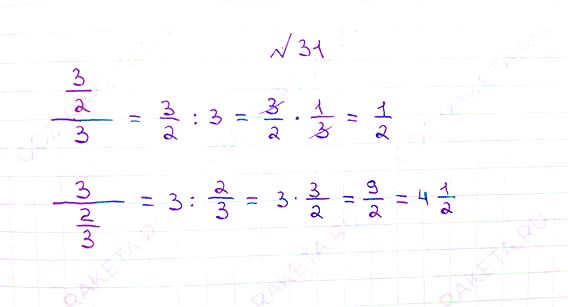 №31
\frac{\frac{3}{2}}{3} = \frac{3}{2} : 3 = \frac{3}{2} · \frac{1}{3} = \frac{1}{2}
\frac{3}{\frac{2}{3}} = 3 : \frac{2}{3} = 3 · \frac{3}{2} = \frac{9}{2} = 4 \frac{1}{2}
RAKETA.RU RAKETA.RU RAKETA.RU